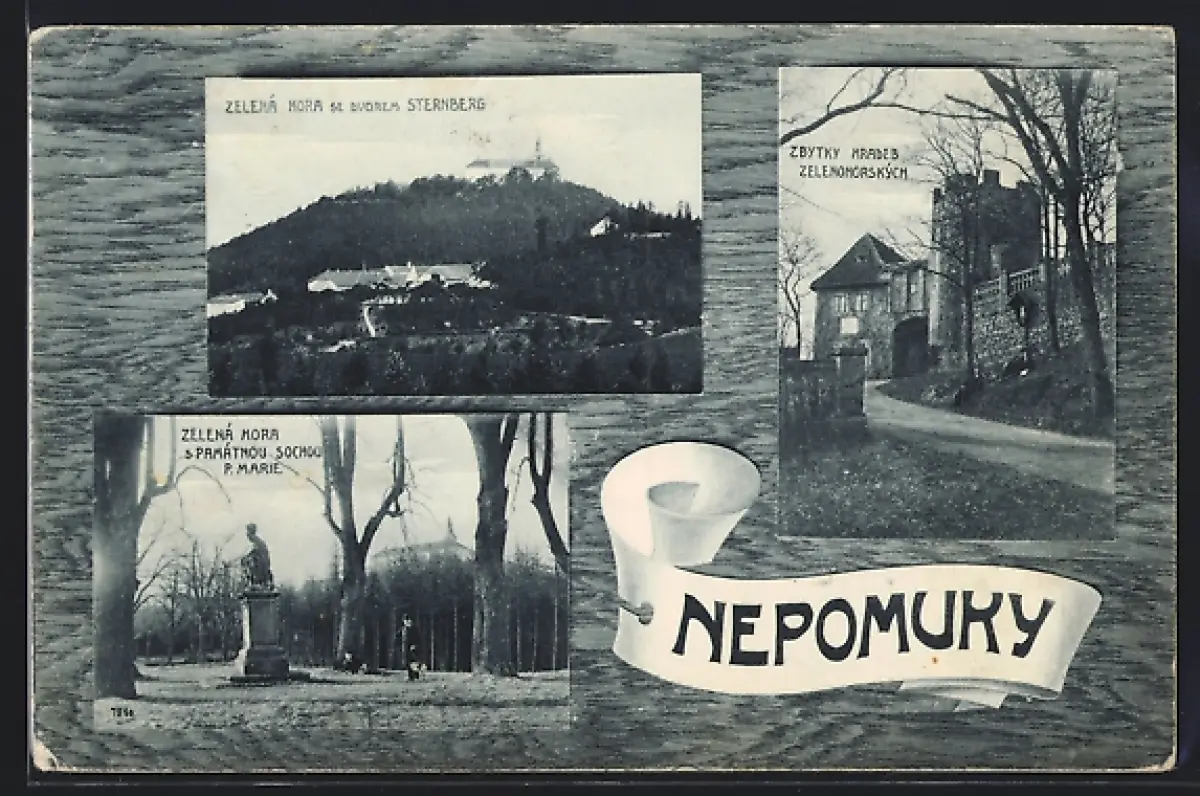 ZELENÁ HORA SE DVOREM STERNBERG
ZBYTKY HRADEB
ZELENOHORSKÝCH
ZELENÁ HORA
S PAMÁTNOU SOCHOU
P. MARIE
NEPOMUKY